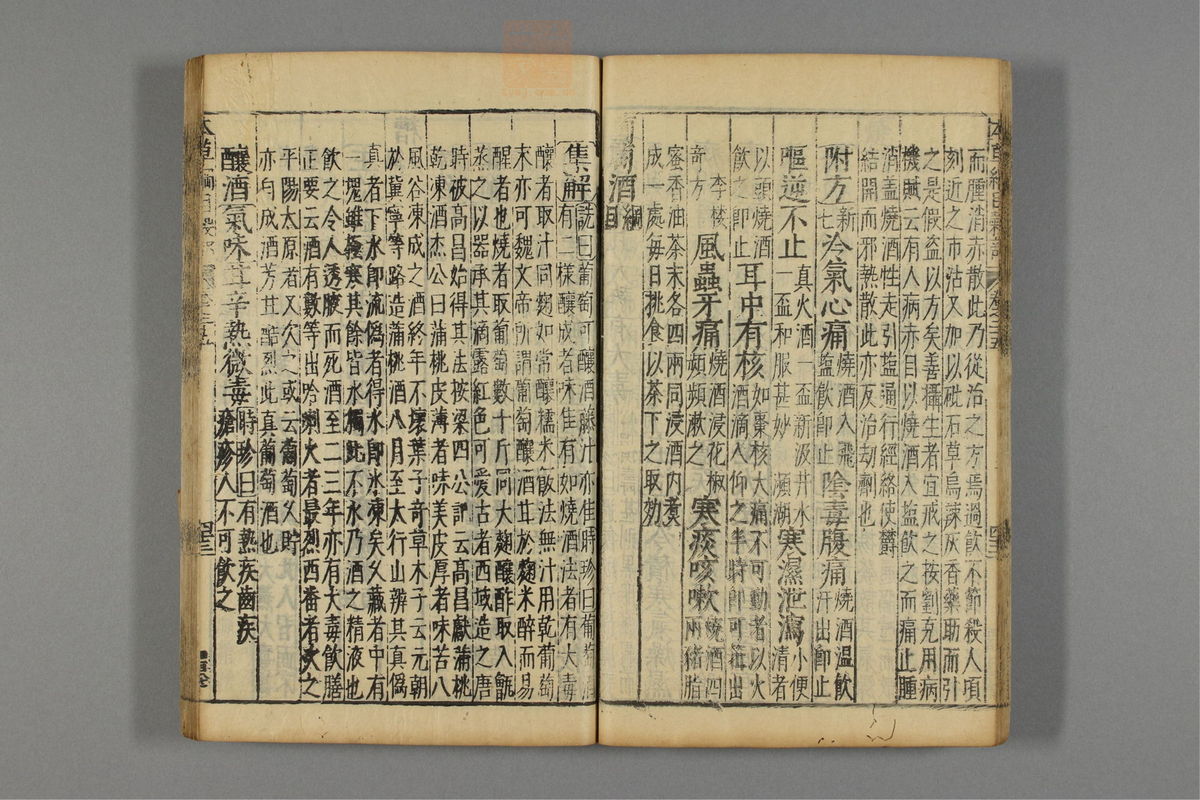 本草綱目穀部 卷之二十五 四十二
而腫消亦散此乃從治之方焉過飲不節殺人頃
刻近之市沽又加以砒石草烏辣灰香藥助而引
之是假盜以方矣善攝生者宜戒之按劉克用病
機賦云有人病赤目以燒酒入盐飲之而痛止腫
消盖燒酒性走引盐通行經絡使欝
結開而邪熱散此亦反治劫劑也
附方新七冷氣心痛燒酒入飛盐飲卽止陰毒腹痛燒酒溫飲汗出卽止
嘔逆不止真火酒一盃新汲井水一盃和服甚妙瀕湖寒濕泄瀉小便清者
以頭燒酒飲之卽止耳中有核如棗核大痛不可動者以火酒滴入仰之半時卽可箝出
李樓奇方風蟲牙痛燒酒浸花椒頻頻漱之寒痰咳嗽燒酒四兩豬脂
蜜香油茶末各四兩同浸酒內煑
成一處每日挑食以茶下之取効
葡萄酒綱目
集解詵曰葡萄可釀酒藤汁亦佳時珍曰葡萄酒
有二樣釀成者味佳有如燒酒法者有大毒
釀者取汁同麴如常釀糯米飯法無汁用乾葡萄
末亦可魏文帝所謂葡萄釀酒甘於麴米醉而易
醒者也燒者取葡萄數十斤同大麴釀酢取入甑
蒸之以器承其滴露紅色可愛古者西域造之唐
時破高昌始得其法按梁四公記云高昌獻蒲桃
乾凍酒杰公曰蒲桃皮薄者味美皮厚者味苦八
風谷凍成之酒終年不壞葉子奇草木子云元朝
於冀寧等路造蒲桃酒八月至太行山辨其真僞
真者下水卽流僞者得水卽氷凍矣乆藏者中有
一塊雖極寒其餘皆氷獨此不氷乃酒之精液也
飲之令人透腋而死酒至二三年亦有大毒飲膳
正要云酒有數等出哈喇火者最烈西番者次之
平陽太原者又次之或云葡萄乆貯
亦自成酒芳甘酷烈此真葡萄酒也
釀酒氣味甘辛熱微毒時珍曰有熱疾齒疾瘡疹人不可飲之
本草綱目穀部 卷之二十五 四十三